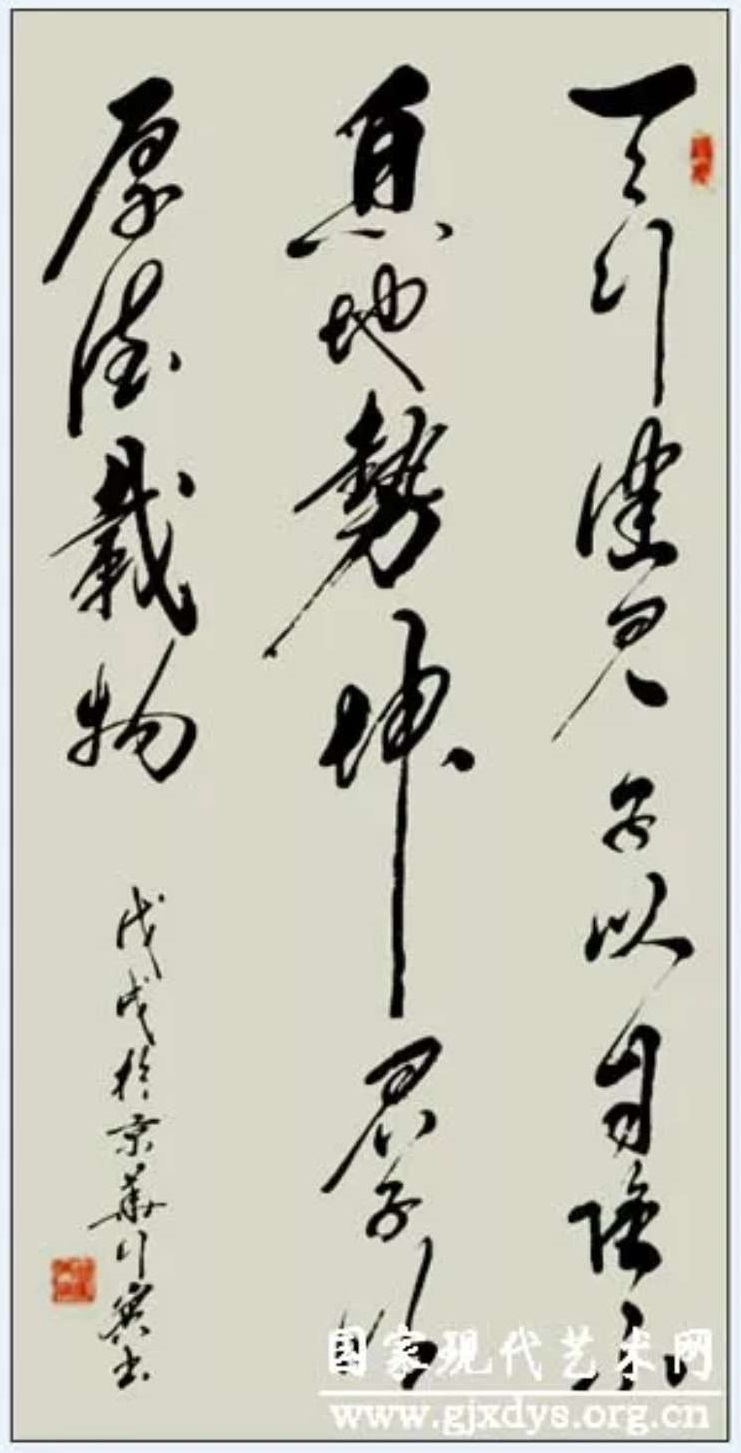 天行健君子以自强不
息地勢坤君子以
厚德載物
戊戌於京華行书
国家现代艺术网
www.gjxdys.org.cn